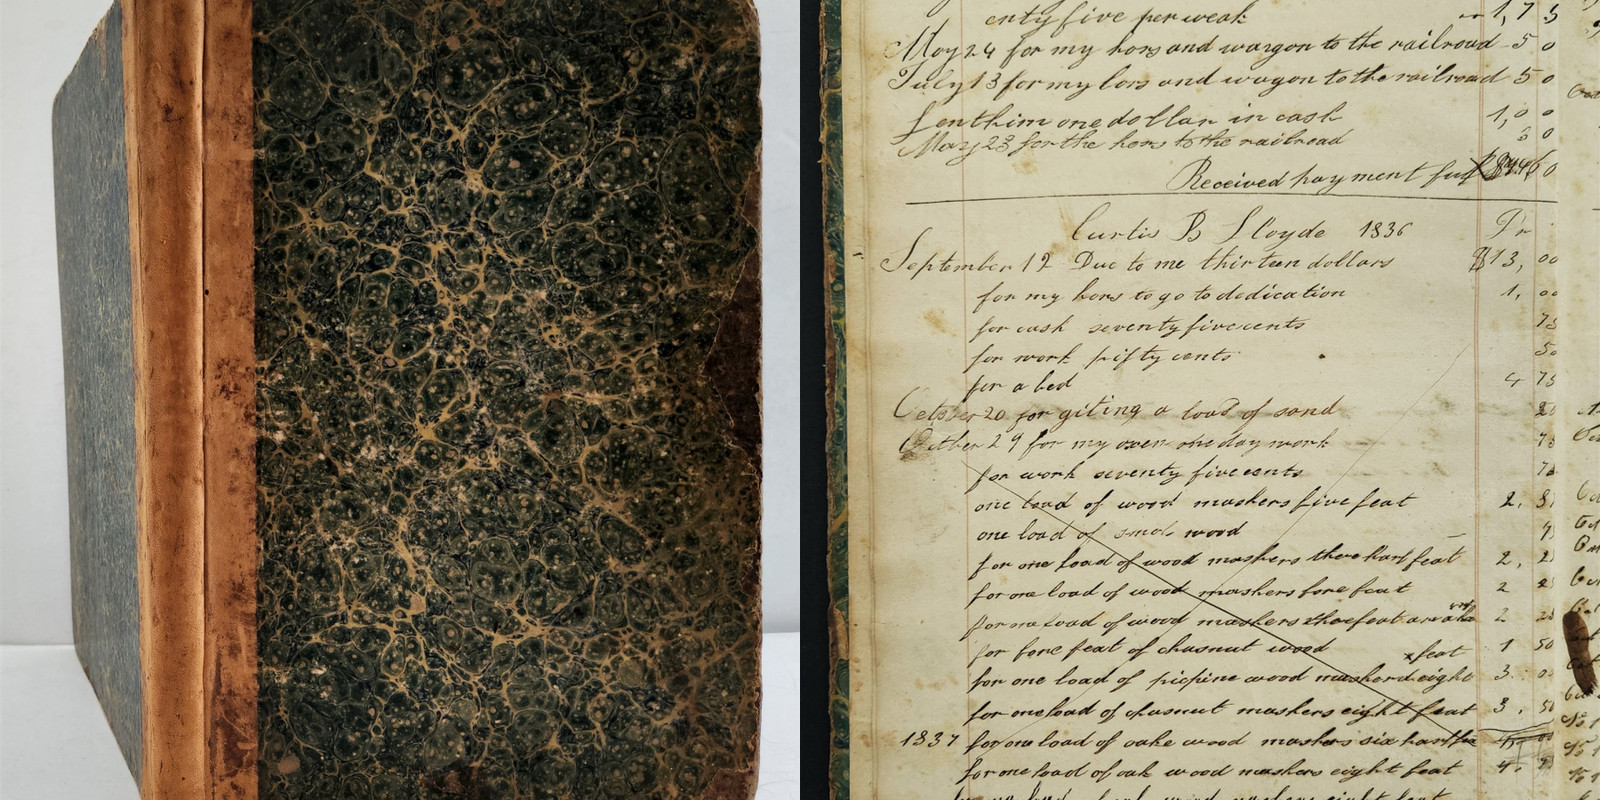 enty five per weak 1,75
May 24 for my hors and wargon to the railroad 50
July 13 for my hors and wagon to the railroad 50
Lent him one dollar in cash 1,00
May 23 for the hors to the railroad 30
Received payment full
Curtis B Lloyde 1836 Dr
September 12 Due to me thirteen dollars $13,00
for my hors to go to dedication 1,00
for cash seventy five cents 75
for work pifty cents 50
for a bed 4 75
October 20 for giting a load of sand 20
Octber 29 for my oxen one day work 75
for work seventy five cents 75
one load of wood mashers five feat 2,
one load of smol wood
for one load of wood mashers three harf feat 2,
for one load of wood mashers fore feat 2
for one load of wood mashers threefeat 2
for fore feat of chasnut wood 1 50
x feat
for one load of picpine wood masherd eight 3
for one load of chasnut mashers eight feat 3, 50
1837 for one load of oake wood mashers six harf
for one load of oak wood mashers eight feat 4,